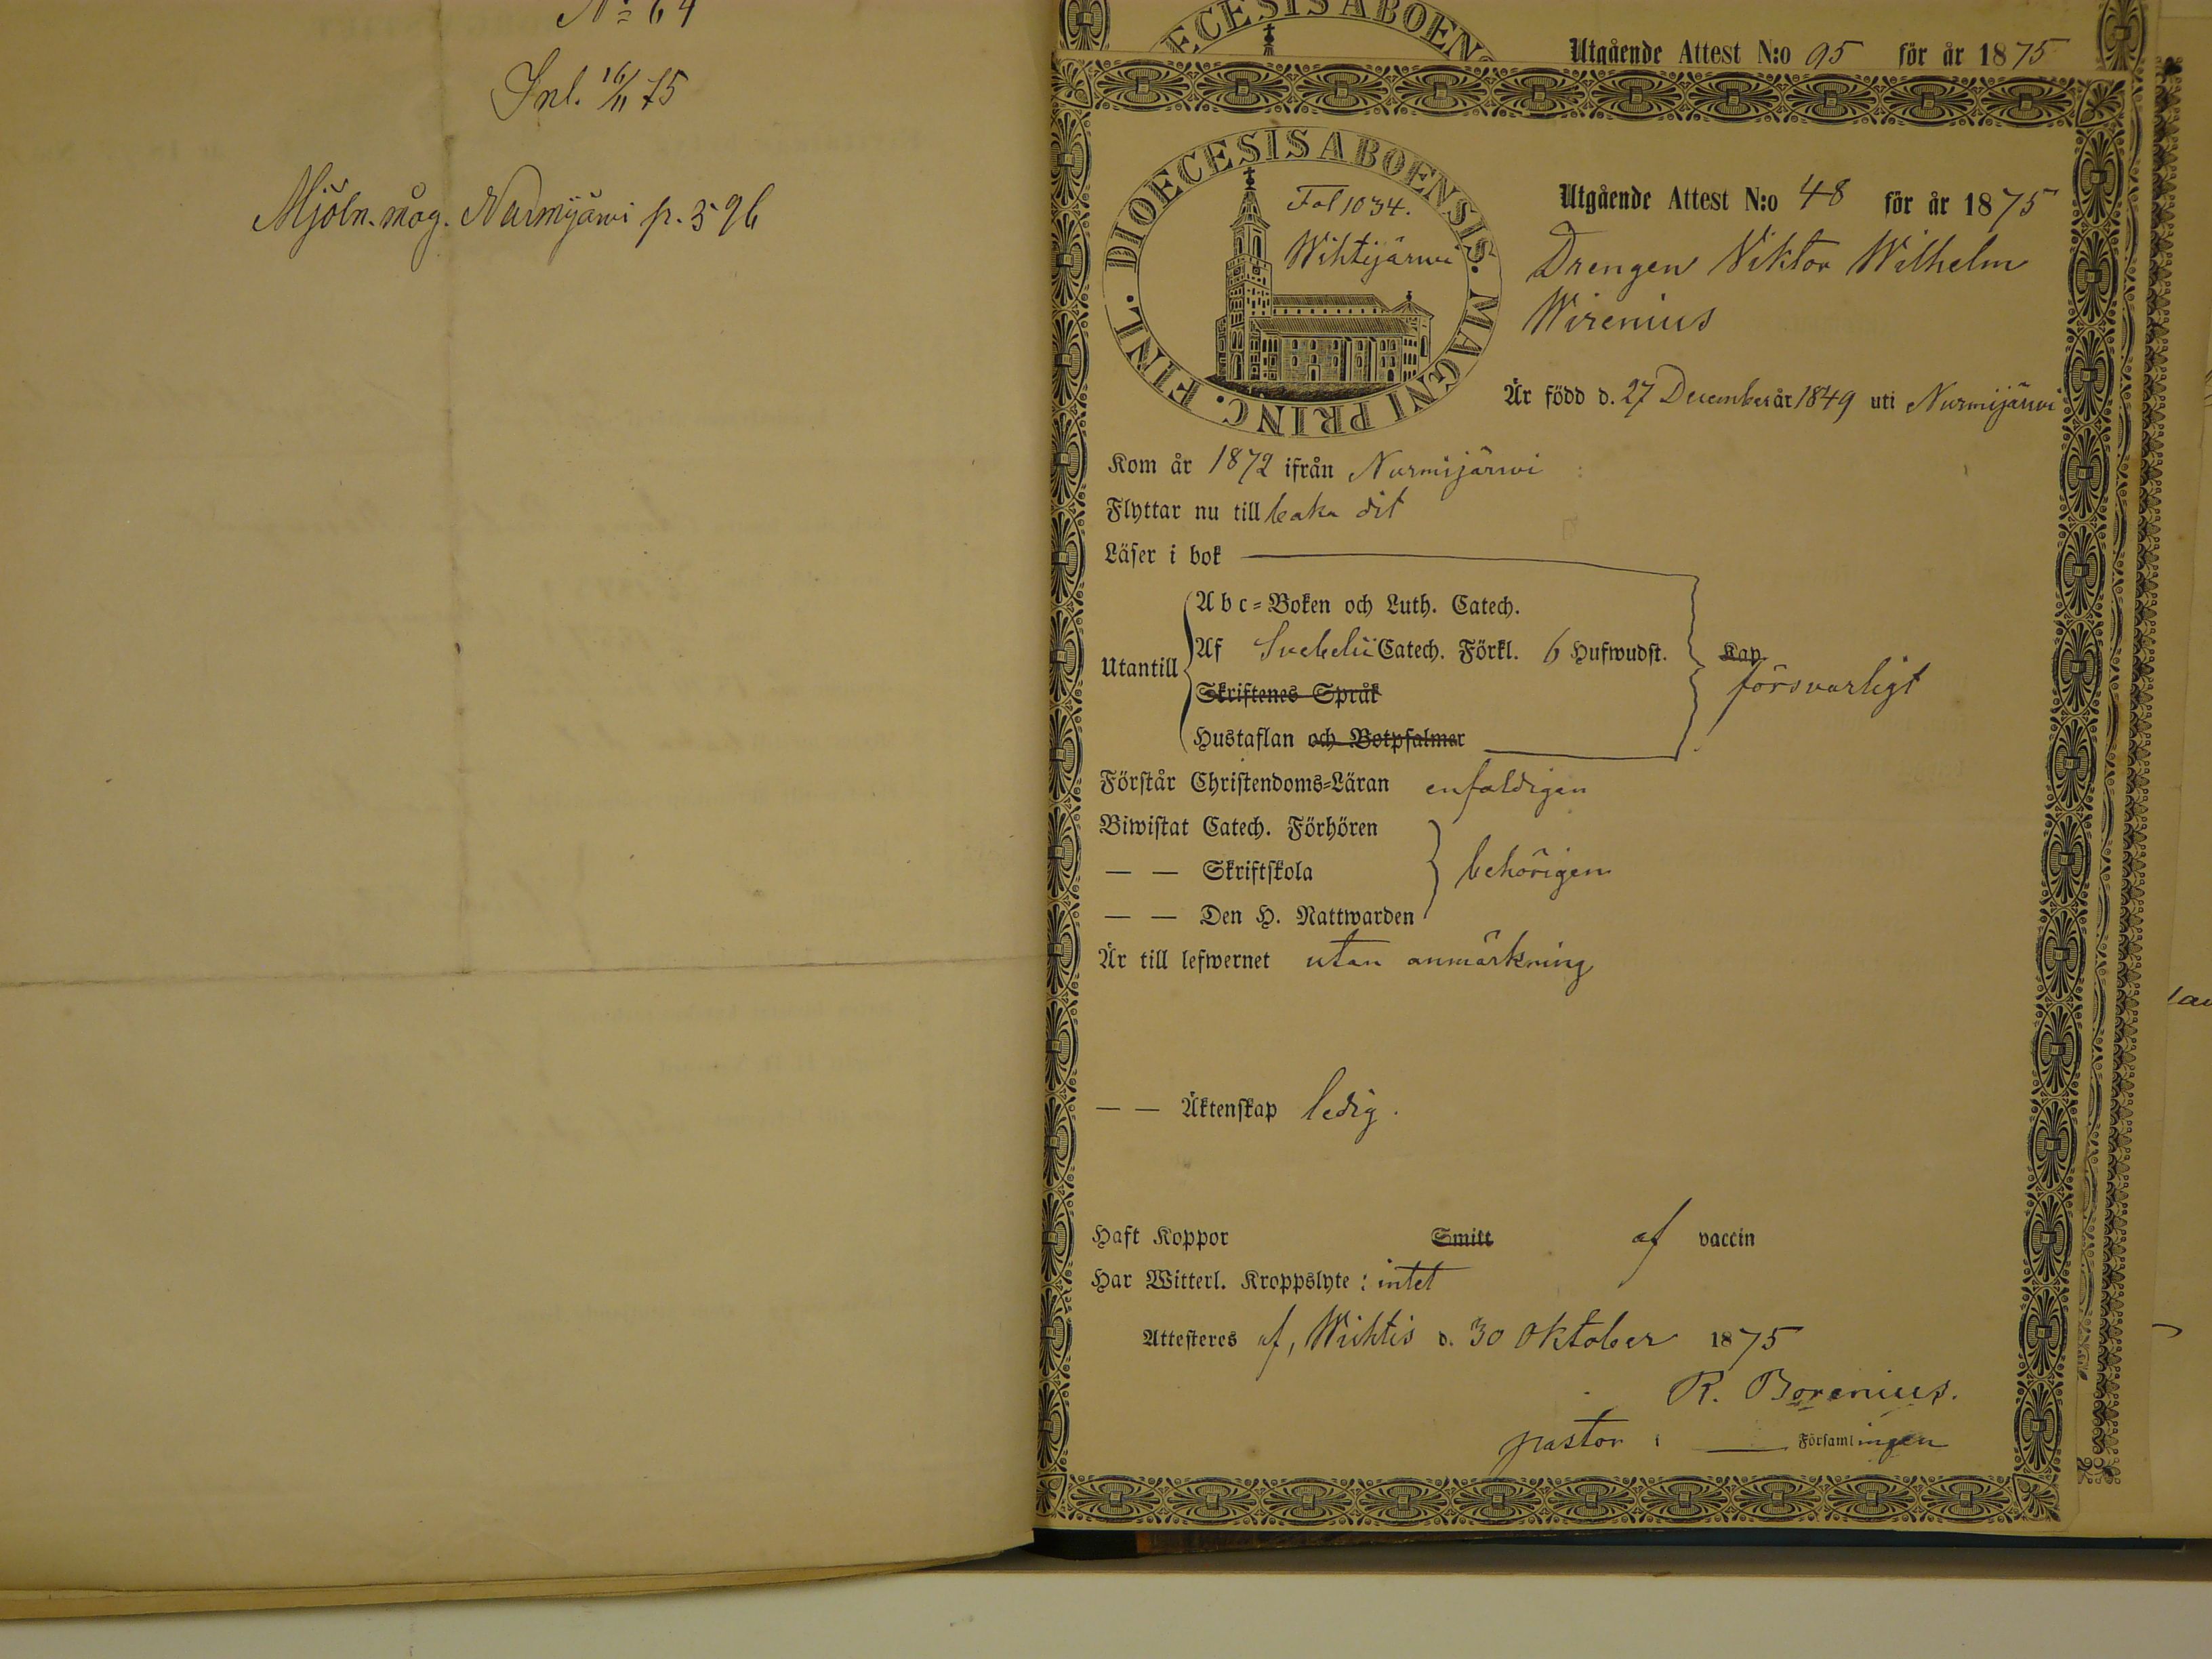 No 64
Inl. 16/11 75
Mjöln. måg. Nurmijärwi p. 596
DIOECESIS ABOENSIS
Utgående Attest N:o 95 för år 1875
DIOECESIS ABOENSIS. MAGNI PRINC. FINL.
Fol 1034.
Wihtijärwi
Utgående Attest N:o 48 för år 1875
Drengen Viktor Wilhelm
Wirenius
Är född d. 27 December år 1849 uti Nurmijärwi
Kom år 1872 ifrån Nurmijärwi
Flyttar nu till baka dit
Läser i bok
Utantill
Abc-Boken och Luth. Catech.
Af Svebelii Catech. Förkl. 6 Hufwudst.
Kap.
Skriftenes Språk
försvarligt
Hustaflan och Botpsalmer
Förstår Christendoms-Läran enfaldigen
Biwistat Catech. Förhören
— — Skriftskola
behörigen
— — Den H. Nattwarden
Är till lefwernet utan anmärkning
— — Äktenskap ledig.
Haft Koppor Smitt af vaccin
Har Witterl. Kroppslyte: intet
Attesteres af, Wichtis d. 30 Oktober 1875
R. Borenius.
pastor i Församlingen